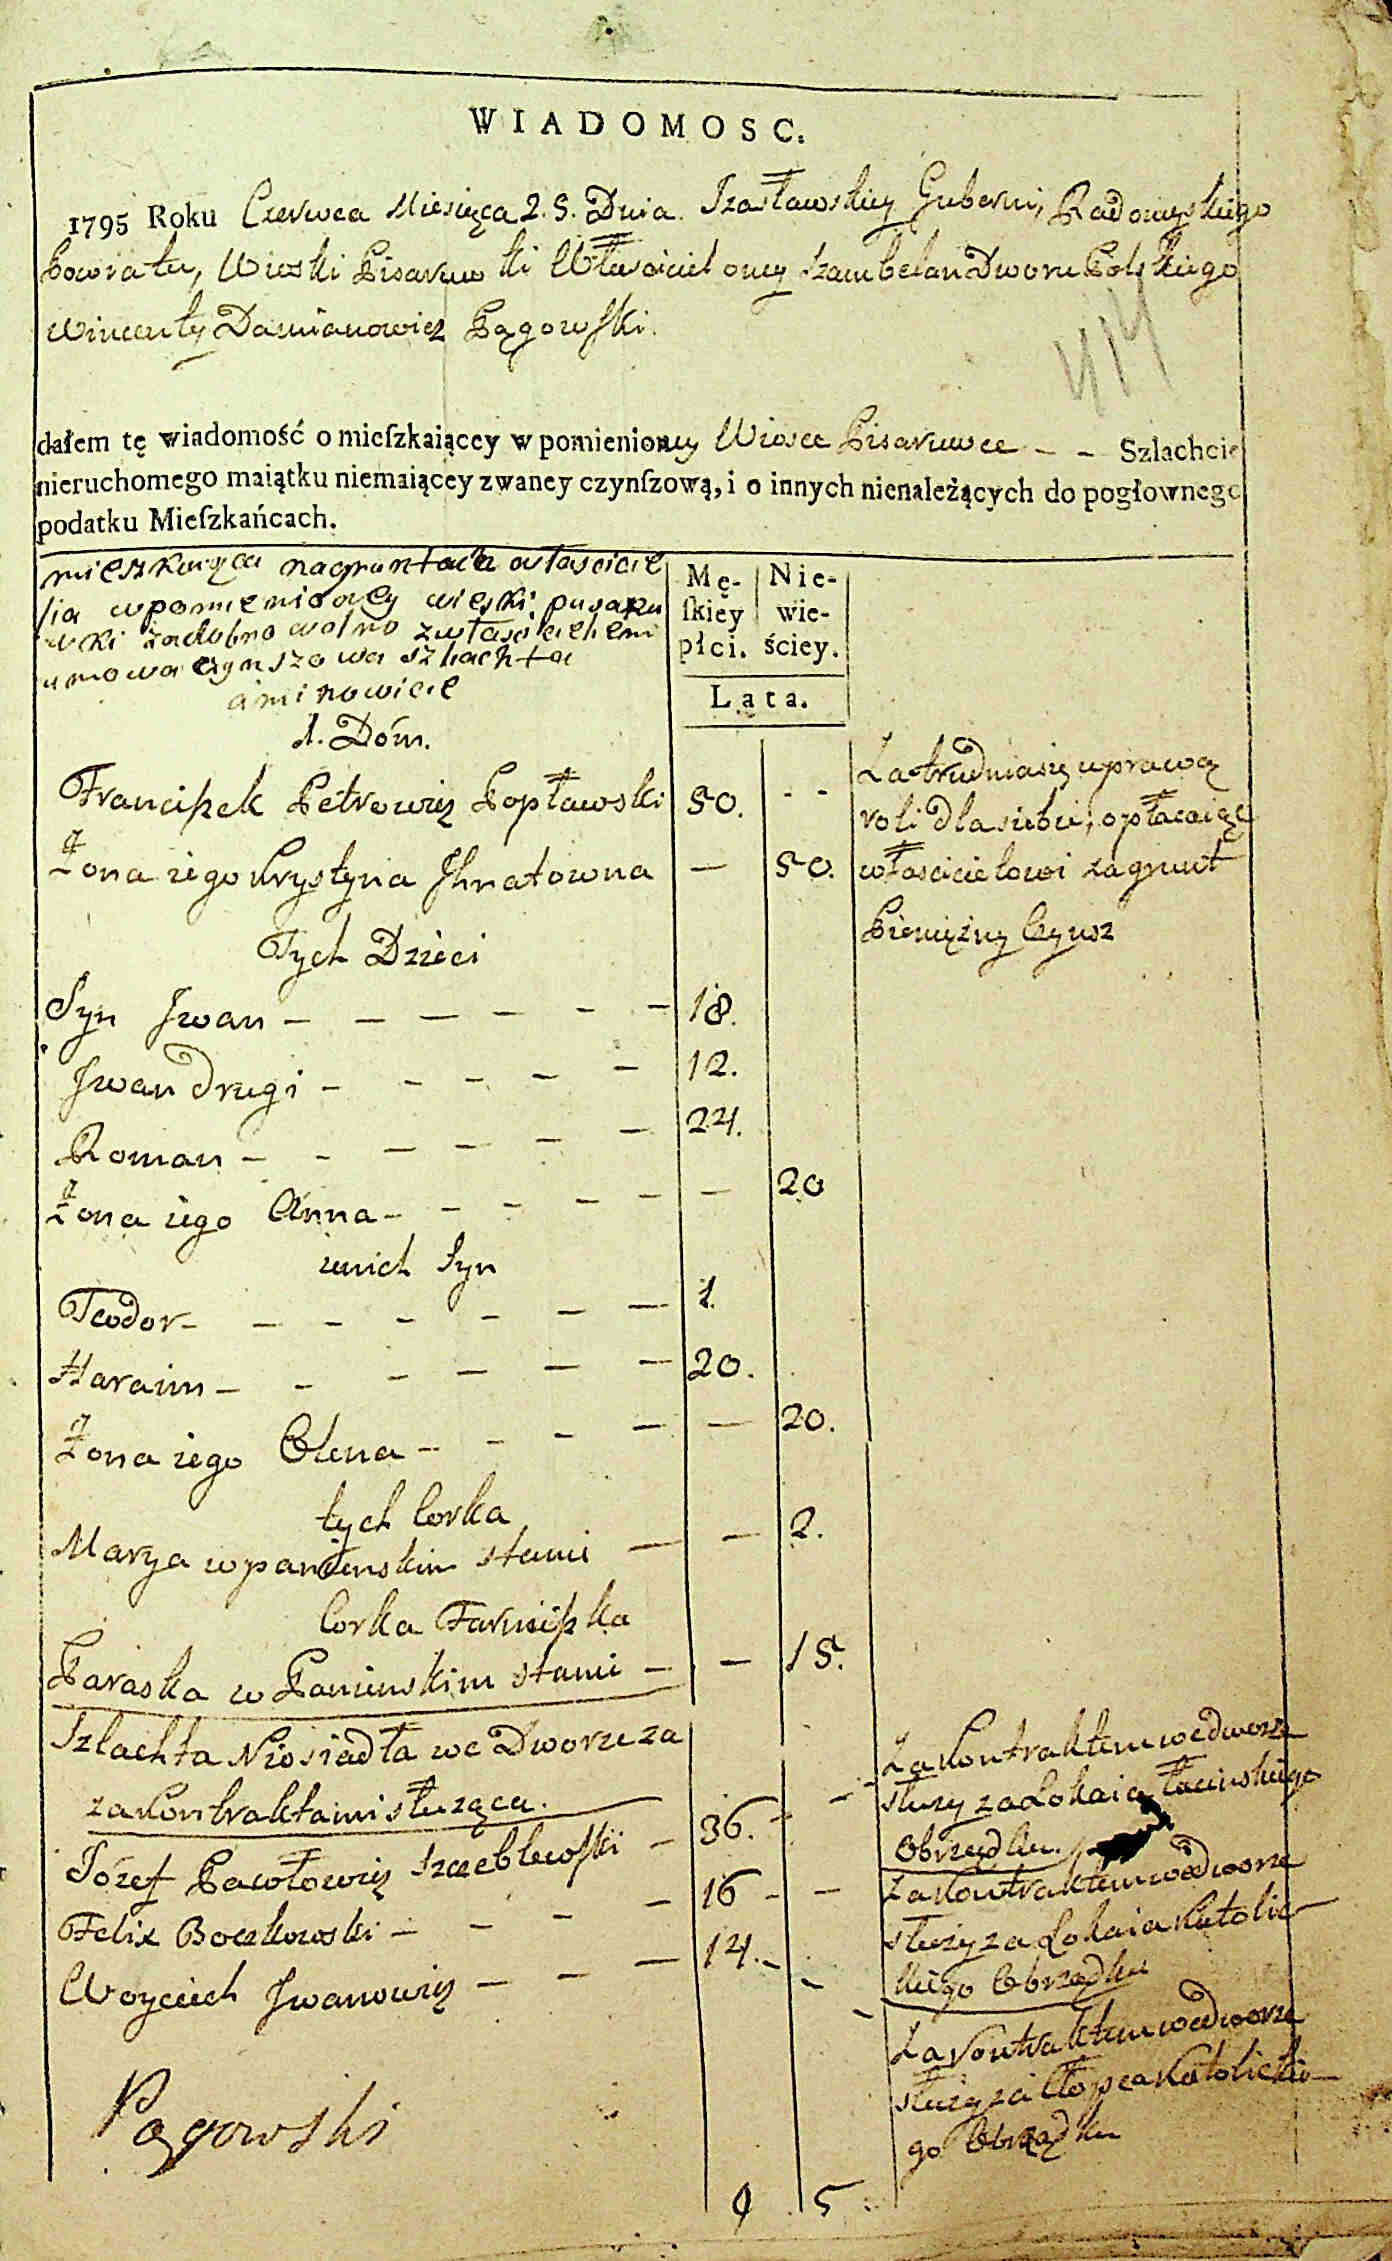 WIADOMOSC.
1795 Roku Czerwca Miesięca 2.5. Dnia. Izasławskiey Guberni, Radomyskiego
Powiatu, Wioski Pisaruwki Właściciel oney Szambelan Dworu Polskiego
Wincenty Damianowicz Pągowski.
414
dałem tę wiadomość o mieſzkaiącey w pomienioney Wiosce Pisaruwce - - Szlachcie
nieruchomego maiątku niemaiącey zwaney czynſzową, i o innych nienależących do pogłownego
podatku Mieſzkańcach.
mieszkaiąca na gruntach własciciela
w pomienioney wieski pisaru
wki zadobrowolno z właścicielem
umowa czynszowa szlachta
a mi nowicie
Mę- Nie-
ſkiey wie-
płci. ściey.
Lata.
1. Dóm.
Franciszek Petrowicz Popławski 50. - -
Żona iego Krystyna Ihnatowna — 50.
Za trudnia się uprawą
roli dla siebie, opłacaiąc
właścicielowi za grunt
Pieniężny Czynsz
Tych Dzieci
Syn Jwan - — — — - — 18.
Jwan drugi - - - — — 12.
Roman - - — — — — 24.
Żona iego Anna - - — — — — 20
z nich Syn
Teodor - — - - — — — 1.
Haraim - - - — — — 20.
Żona iego Olena - - — — — 20.
tych Corka
Marya w panienskim stanie — — 2.
Corka Franciszka
Paraska w Panienskim stanie — — 15.
Szlachta Niosiadła we Dworze za
za kontraktami służąca.
Józef Pawłowicz Szczeblewski — 36. - —
Felix Boczkowski - - — — 16 - —
Woyciech Jwanowicz - — — 14. - -
Za Kontraktem we dworze
służy za Lokaia łacinskiego
Obrządku.
Za Kontraktem we dworze
służy za Lokaia Katolic
kiego Obrządku
Za Kontraktem we dworze
służy za Chłopca Katolickie-
go Obrządku
Pągowski
9 5